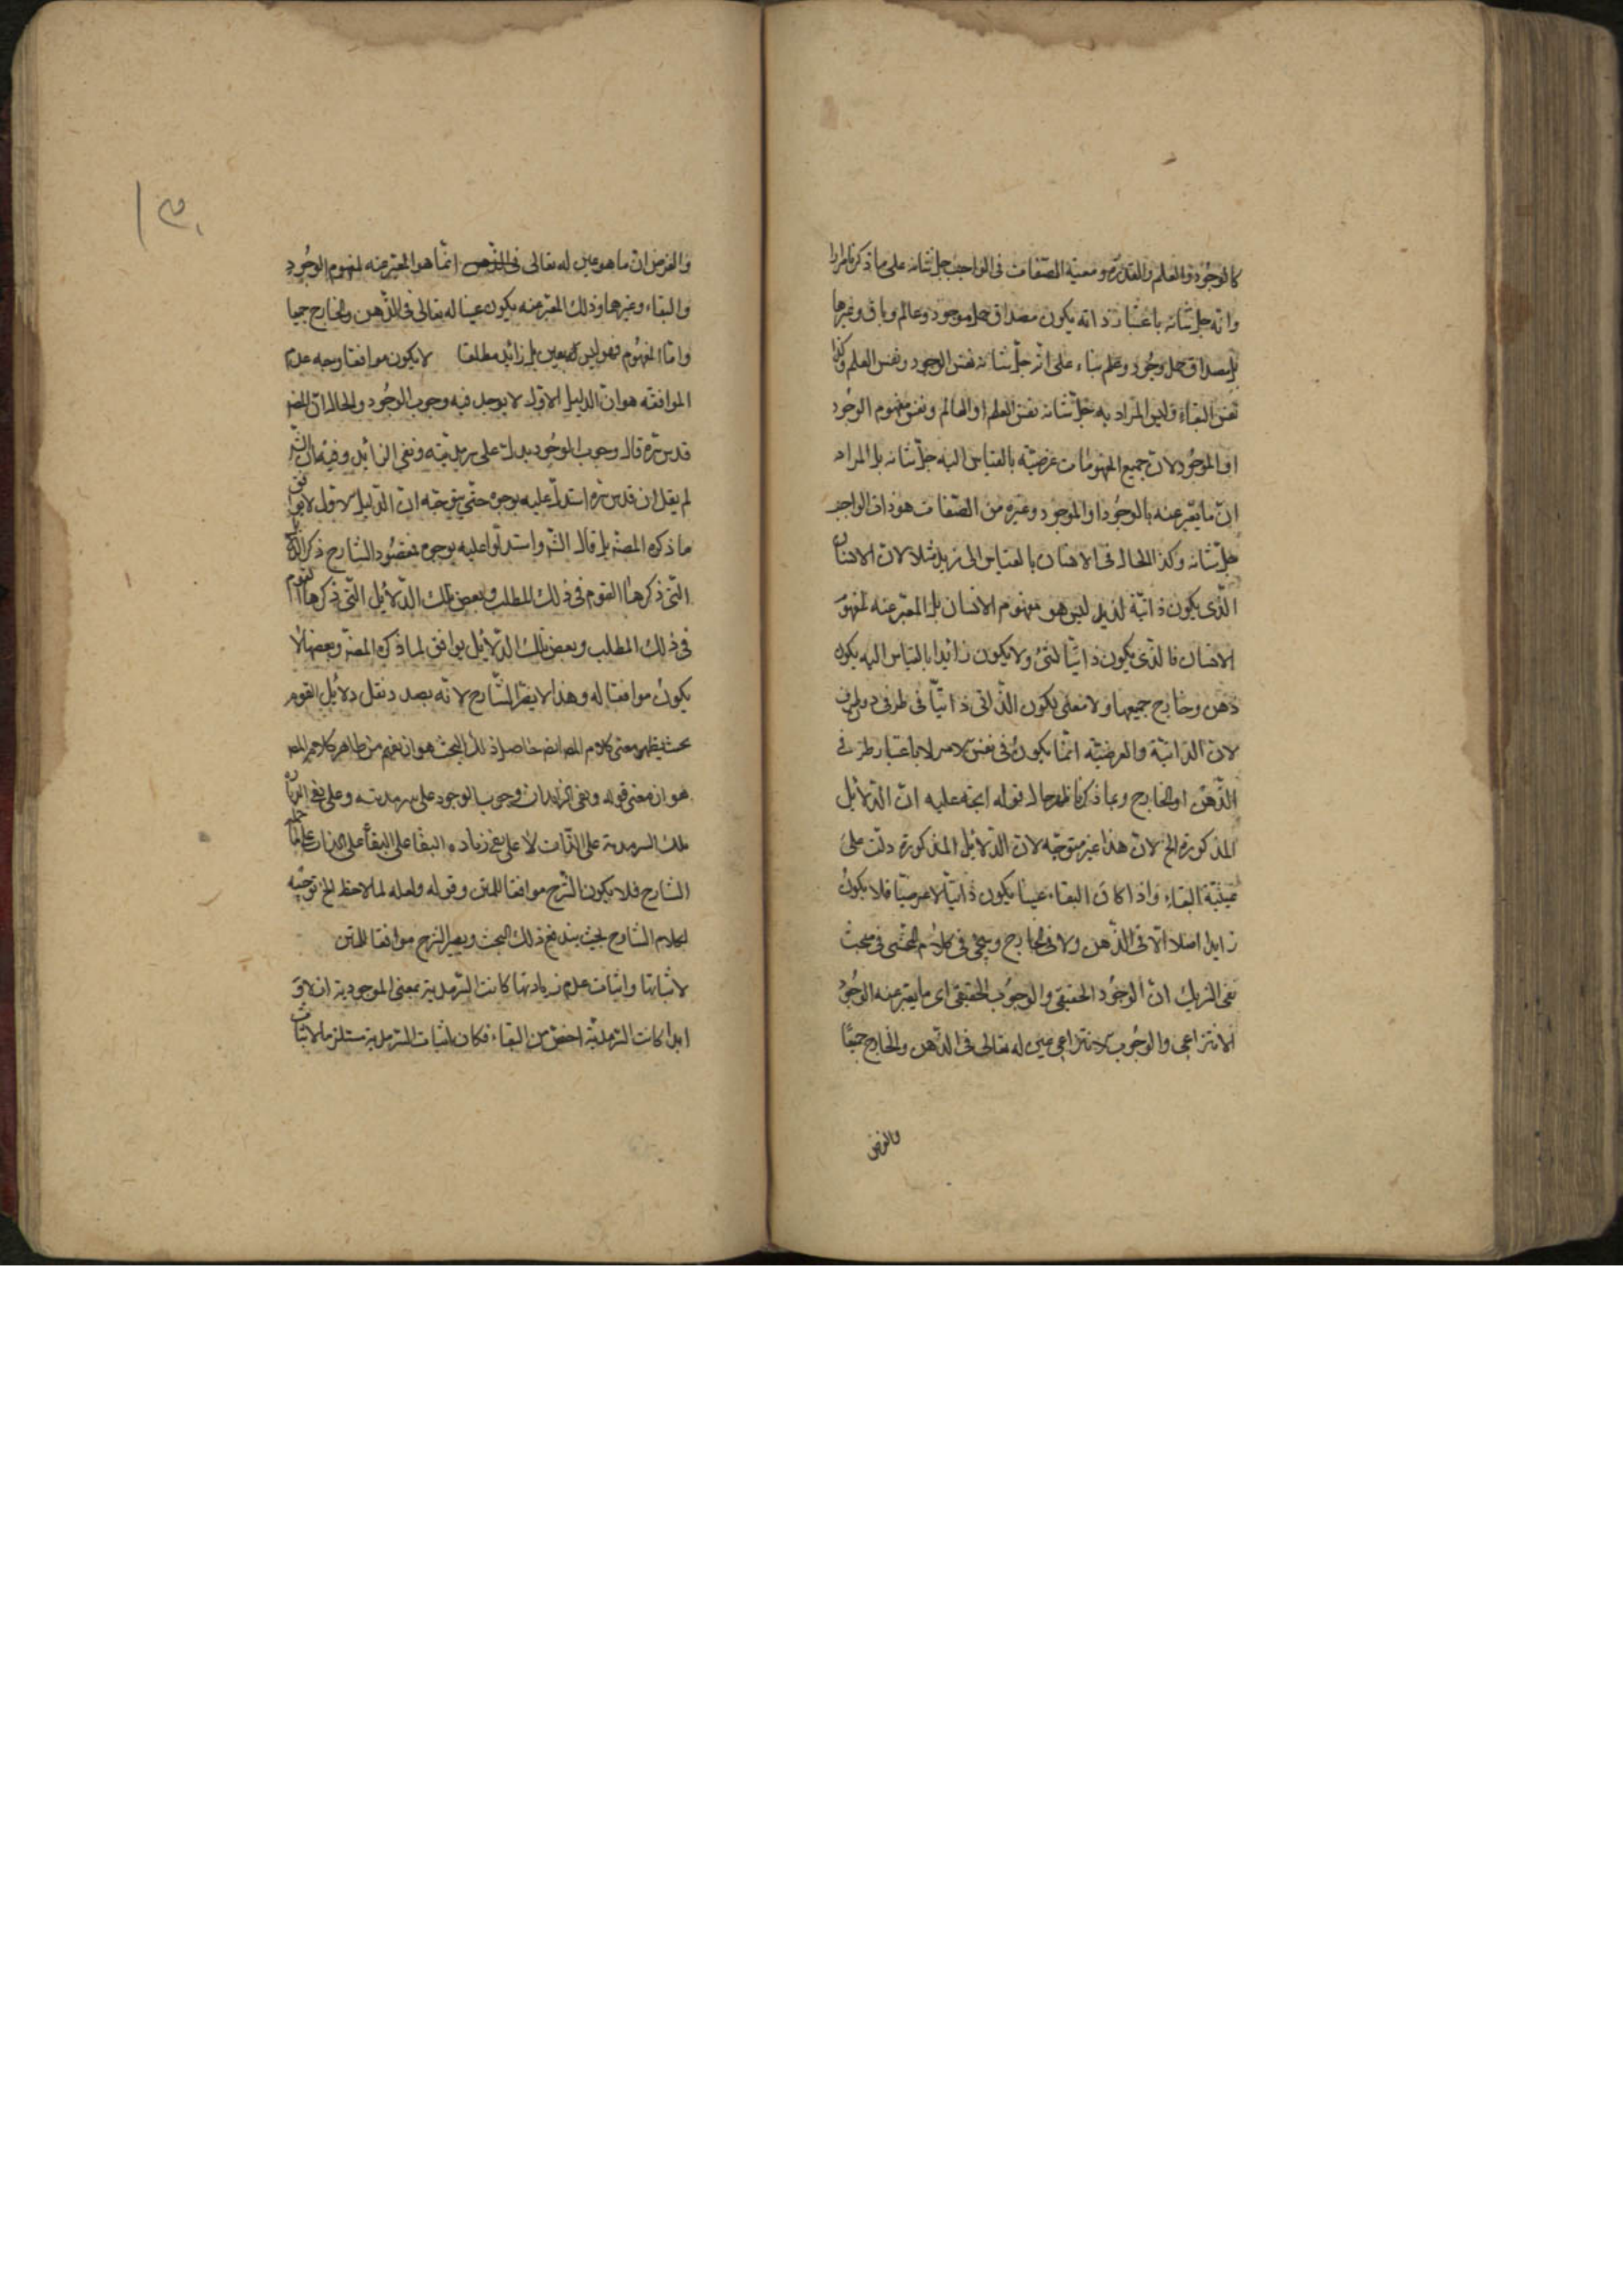 كالوجود والعلم والقدرة ومعنية الصفات فى الواجب جل شانه على ما ذكرنا مرارا
وانه جل شانه باعتبار ذاته يكون مصداق حمل موجود وعالم وباق وغيرها
بل مصداق حمل وجود وعلم بناء على انه جل شانه نفس الوجود ونفس العلم وكذا
نفس البقاء وليس المراد به جل شانه نفس العلم او العالم ونفس مفهوم الوجود
او الموجود لان جميع المفهومات عرضية بالقياس اليه جل شانه بل المراد
ان ما يعبر عنه بالوجود او الموجود وغيره من الصفات هو ذات الواجب
جل شانه وكذا الحال فى الانسان بالقياس الى زيد مثلا لان الانسان
الذى يكون ذاتية لزيد ليس هو مفهوم الانسان بل المعبر عنه لمفهوم
الانسان فالذى يكون ذاتيا لشئ ولا يكون زائدا بالقياس اليه يكون
ذهن وخارج جميعها ولا معنى لكون الذاتى ذاتيا فى ظرف دون ظرف
لان الذاتية والعرضية انما يكون فى نفس الامر لا باعتبار ظرف
الذهن او الخارج وبما ذكرنا ظهر حال قوله اتجه عليه ان الدلائل
المذكورة الخ لان هذا غير متوجه لان الدلائل المذكورة دلت على
عينية البقاء واذا كان البقاء عينا يكون ذاتيا لا عرضيا فلا يكون
زايدا اصلا لا فى الذهن ولا فى الخارج وسيجئ فى كلام المحشى فى مبحث
نفى الشريك ان الوجود الحقيقى والوجوب الحقيقى اى ما يعبر عنه الوجود
الانتزاعى والوجوب الانتزاعى عين له تعالى فى الذهن والخارج جميعا
والغرض
والغرض ان ما هو عين له تعالى فى الذهن انما هو المعبر عنه لمفهوم الوجود
والبقاء وغيرهما وذلك المعبر عنه يكون عينا له تعالى فى الذهن والخارج جميعا
واما المفهوم فهو ليس بعين بل زائد مطلقا لا يكون موافقا وجه عدم
الموافقه هو ان الدليل الاول لا يوجد فيه وجوب الوجود والحال ان المصنف
قدس سره قال وجوب الوجود يدل على سرمديته ونفى الزائد وفيه ان الشارح
لم يقل ان قدس سره استدل عليه بوجوه حتى يتوجه ان الدليل الاول لا يوافق
ما ذكره المصنف بل قال الشر واستدلوا عليه بوجوه فمقصود الشارح ذكر الدلائل
التى ذكرها القوم فى ذلك المطلب وبعض تلك الدلائل التى ذكرها القوم
فى ذلك المطلب وبعض تلك الدلائل يوافق لما ذكره المصنف وبعضها لا
يكون موافقا له وهذا لا يضر الشارح لانه بصدد نقل دلائل القوم
بحث يظهر معنى كلام المصنف حاصل ذلك البحث هو ان يفهم من ظاهر كلام المصنف
هو ان معنى قوله ونفى الزايد ان وجوب الوجود على سرمديته وعلى نفى الزيادة
تلك السرمدية على الذات لا على نفى زيادة البقاء على الذات
الشارح فلا يكون الشرح موافقا للمتن وقوله ولعله لما لاحظ الخ توجيه
لكلام الشارح بحيث يندفع ذلك البحث ويصير الشرح موافقا للمتن
لاثباتها واثبات عدم زيادتها كانت السرمدية بمعنى الموجودية ازلا و
ابدا كانت السرمدية اخص من البقاء فكان اثبات السرمدية مستلزما لاثبات